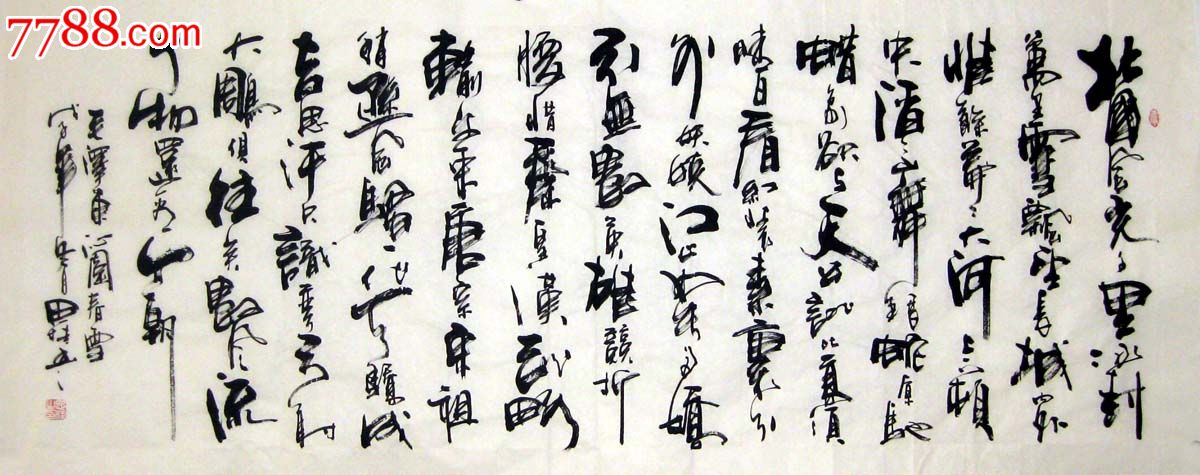 7788.com
北國風光千里冰封
萬里雪飄望長城內外
惟餘莽々大河上下頓
失滔々山舞銀蛇原馳
蠟象欲与天公試比高須
晴日看紅裝素裹分
外妖嬈江山如此多嬌
引無數英雄競折
腰惜秦皇漢武略
輸文采唐宗宋祖
稍遜風騷一代天驕成
吉思汗只識彎弓射
大雕俱往矣數風流
人物還看今朝
毛澤東沁園春雪
戊子年 月 田